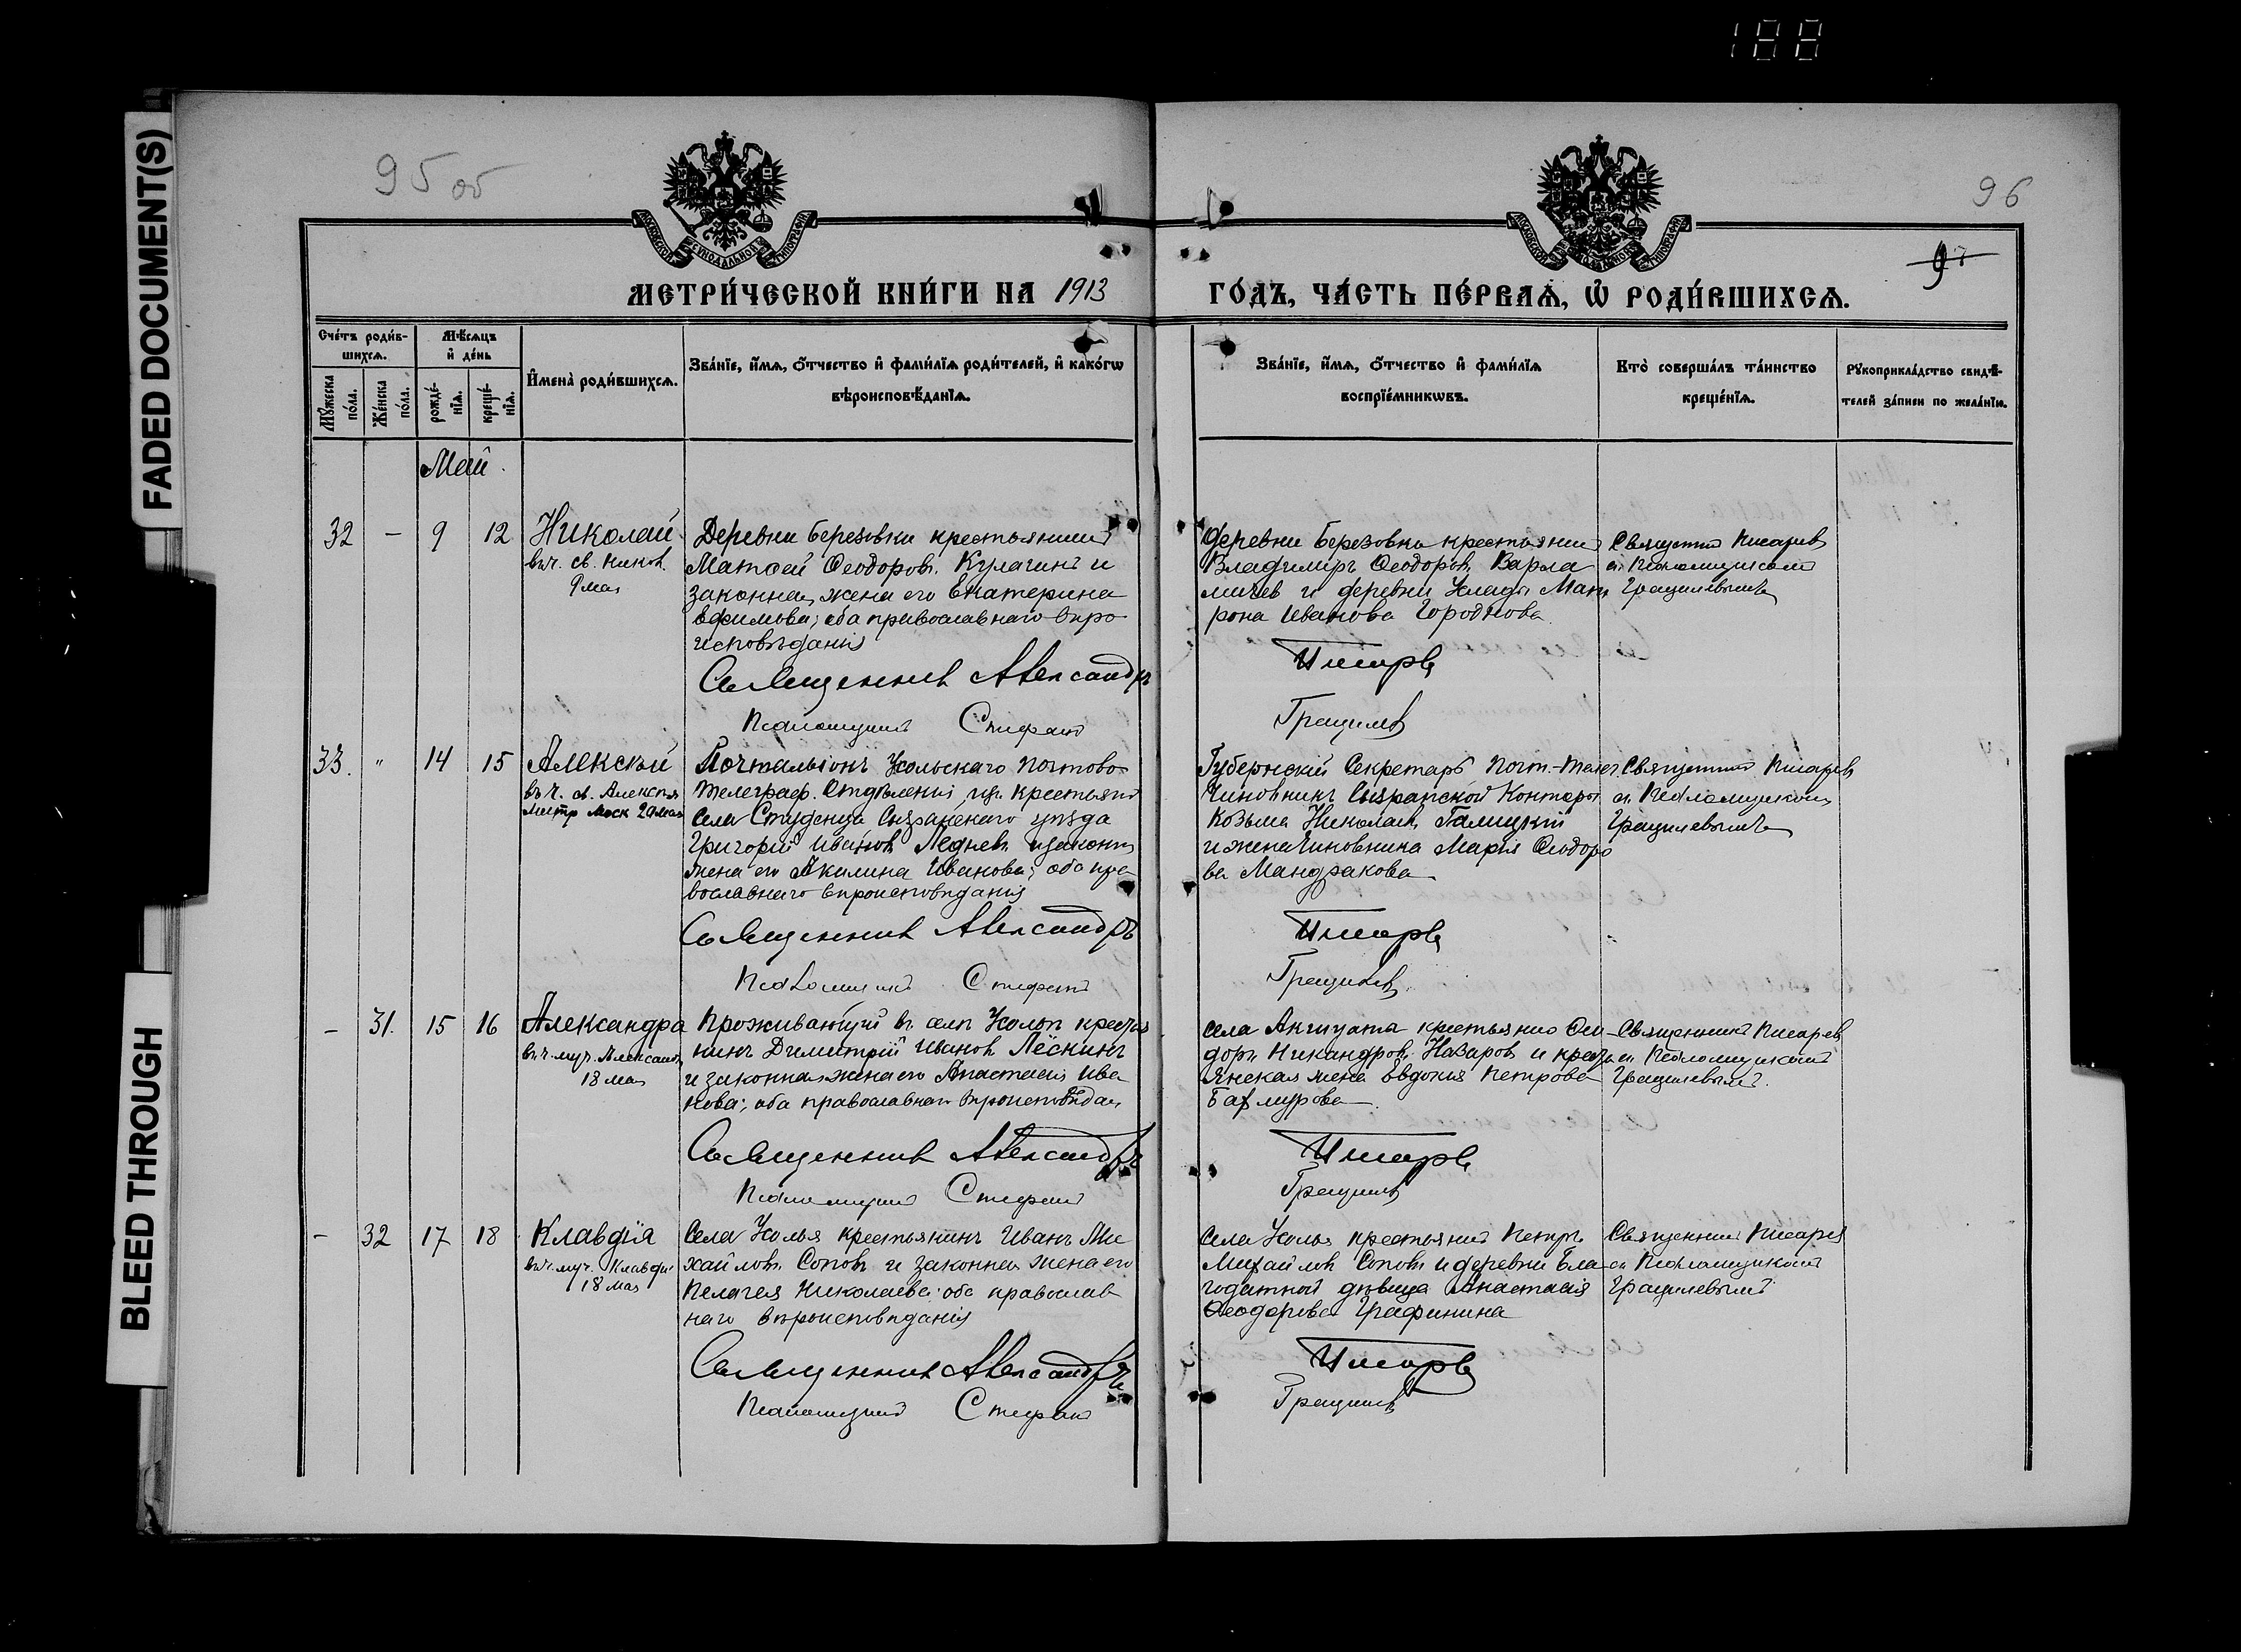 188
FADED DOCUMENT(S)
BLEED THROUGH
95 об
96
МОСКОВСКОЙ СѴНОДАЛЬНОЙ ТИПОГРАФІИ
МЕТРИ́ЧЕСКОЙ КНИ́ГИ НА 1913
ГО́ДЪ, ЧА́СТЬ ПЕ́РВАѦ, Ѡ҆ РОДИ́ВШИХСѦ.
Сче́тъ роди́в-
шихсѧ.
Мꙋ́жеска по́ла.
Же́нска по́ла.
Мѣ́сѧцъ и҆ де́нь
рожде́-нїѧ.
креще́-нїѧ.
И҆мена̀ роди́вшихсѧ.
Зва́нїе, и҆́мѧ, ѻ҆́тчество и҆ фами́лїѧ роди́телей, и҆ како́гѡ
вѣроисповѣ́данїѧ.
Зва́нїе, и҆́мѧ, ѻ҆́тчество и҆ фами́лїѧ
воспрїе́мникѡвъ.
Кто̀ соверша́лъ та́инство
креще́нїѧ.
Рꙋкоприкла́дство свидѣ́-
телей за́писи по жела́нїю.
Май.
32 – 9 12 Николай
въ ч. св. Никол.
9 мая
Деревни Березовки крестьянинъ
Матѳей Ѳеодоровъ Кулагинъ и
законная жена его Екатерина
Ефимова; оба православнаго вѣро
исповѣданія
Священникъ Александръ
Псаломщикъ Стефанъ
деревни Березовки крестьянинъ
Владиміръ Ѳеодоровъ Варла
мичев и деревни Услады Мат
рона Иванова Городнова
Писаревъ
Грацилевъ
Священникъ Писаревъ
съ Псаломщикомъ
Грацилевымъ
33. " 14 15 Алексѣй
въ ч. св. Алексѣя
Митр Моск 20 мая
Почтальіонъ Усольскаго Почтово-
Телеграф. Отдѣленія, изъ крестьянъ
села Студенца Сызранскаго уѣзда
Григорій Ивановъ Ледневъ и законн
жена его Акилина Иванова; оба пра
вославнаго вѣроисповѣданія
Священникъ Александръ
Псаломщикъ Стефанъ
Губернскій Секретарь Почт.-Телег
Чиновникъ Сызранской Конторы
Козьма Николаевъ Галицкій
и жена Чиновника Марія Ѳеодоро
ва Мандракова
Писаревъ
Грацилевъ
Священникъ Писаревъ
съ Псаломщикомъ
Грацилевымъ
– 31. 15 16 Александра
въ ч. муч. Александр
18 мая
Проживающій въ селѣ Усольѣ крестья
нинъ Димитрій Ивановъ Лёскинъ
и законная жена его Анастасія Ива
нова; оба православнаго вѣроисповѣдан
Священникъ Александръ
Псаломщикъ Стефанъ
села крестьянинъ Ѳео
доръ Никандровъ Назаровъ и крестья
янская жена Евдокія Петрова
Писаревъ
Грацилевъ
Священникъ Писаревъ
съ Псаломщикомъ
Грацилевымъ.
– 32 17 18 Клавдія
въ ч. муч. Клавдіи
18 мая
Села Усолья крестьянинъ Иванъ Ми
хайловъ Соповъ и законная жена его
Пелагея Николаева; оба православ
наго вѣроисповѣданія
Священникъ Александръ
Псаломщикъ Стефанъ
Села Усолья крестьянинъ Петръ
Михайловъ Соповъ и деревни Бла
годатной дѣвица Анастасія
Ѳеодорова Графинина
Писаревъ
Грацилевъ
Священникъ Писаревъ
съ Псаломщикомъ
Грацилевымъ